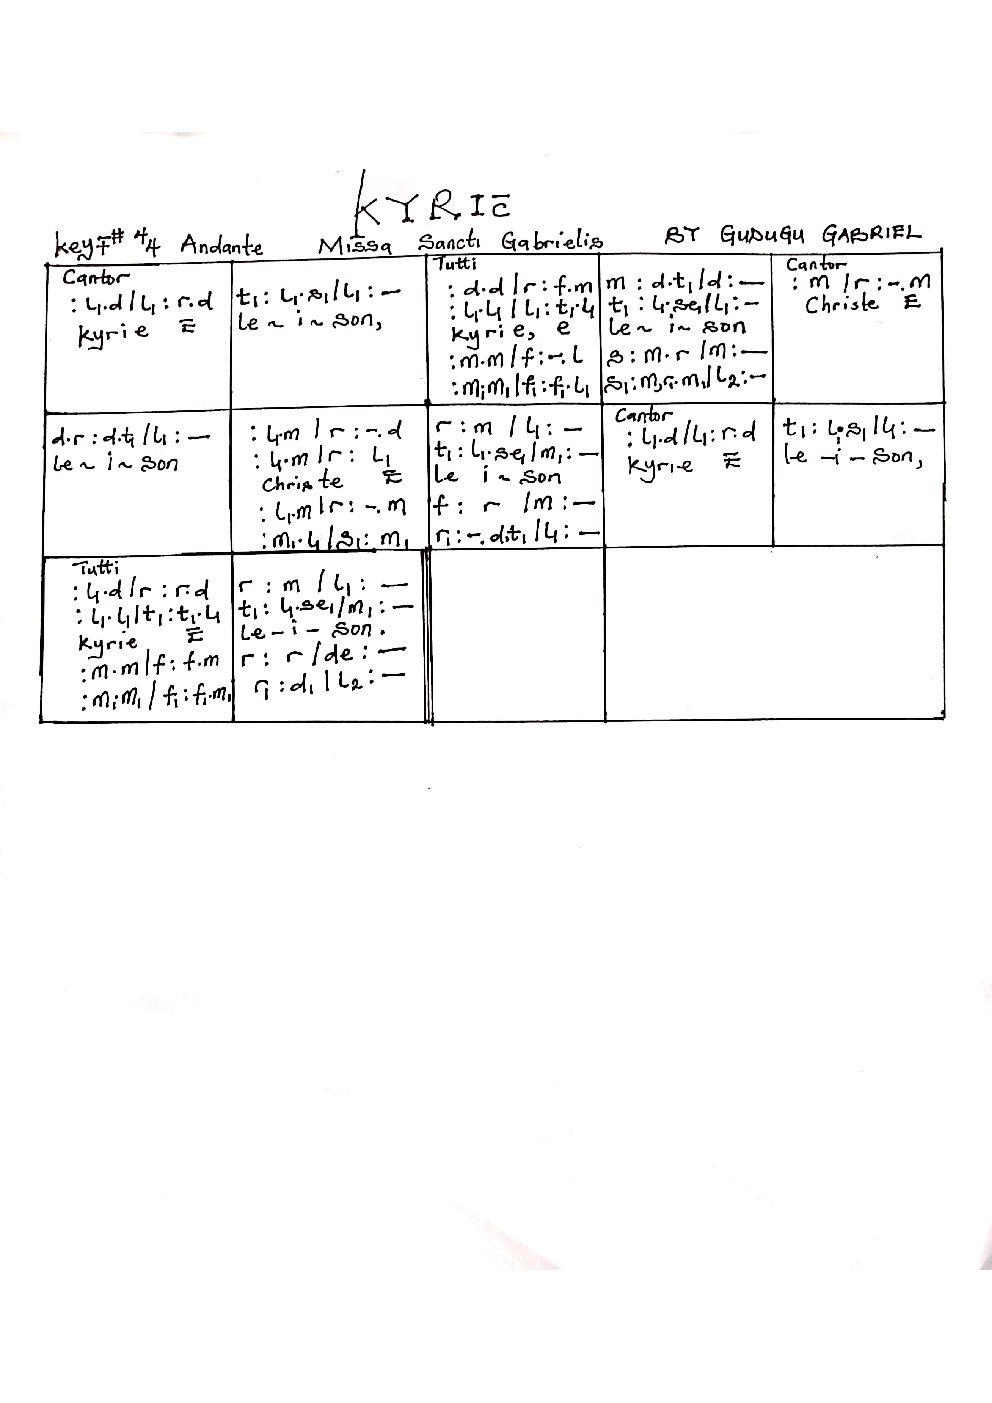 KYRIE
key F# 4/4 Andante Missa Sancti Gabrielis BY GUDUGU GABRIEL
Cantor
: l₁.d / l₁ : r.d
kyrie E
t₁ : l₁.s₁ / l₁ : —
le ~ i ~ son,
Tutti
: d.d / r : f.m
: l₁.l₁ / l₁ : t₁.l₁
kyrie, e
: m.m / f : -. l
: m₁.m₁ / f₁ : f₁.l₁
m : d.t₁ / d : —
t₁ : l₁.se₁ / l₁ : –
le ~ i ~ son
s : m.r / m : —
s₁ : m₁.r₁.m₁ / l₂ : —
Cantor
: m / r : -. m
Christe E
d.r : d.t₁ / l₁ : —
le ~ i ~ son
: l₁.m / r : -. d
: l₁.m / r : l₁
Christe E
: l₁.m / r : -. m
: m₁.l₁ / s₁ : m₁
r : m / l₁ : –
t₁ : l₁.se₁ / m₁ : —
le i ~ son
f : r / m : —
r₁ : -. d.t₁ / l₁ : —
Cantor
: l₁.d / l₁ : r.d
kyrie E
t₁ : l₁.s₁ / l₁ : —
le – i – son,
Tutti
: l₁.d / r : r.d
: l₁.l₁ / t₁ : t₁.l₁
kyrie E
: m.m / f : f.m
: m₁.m₁ / f₁ : f₁.m₁
r : m / l₁ : —
t₁ : l₁.se₁ / m₁ : —
le – i – son.
r : r / de : —
r₁ : d₁ / l₂ : —